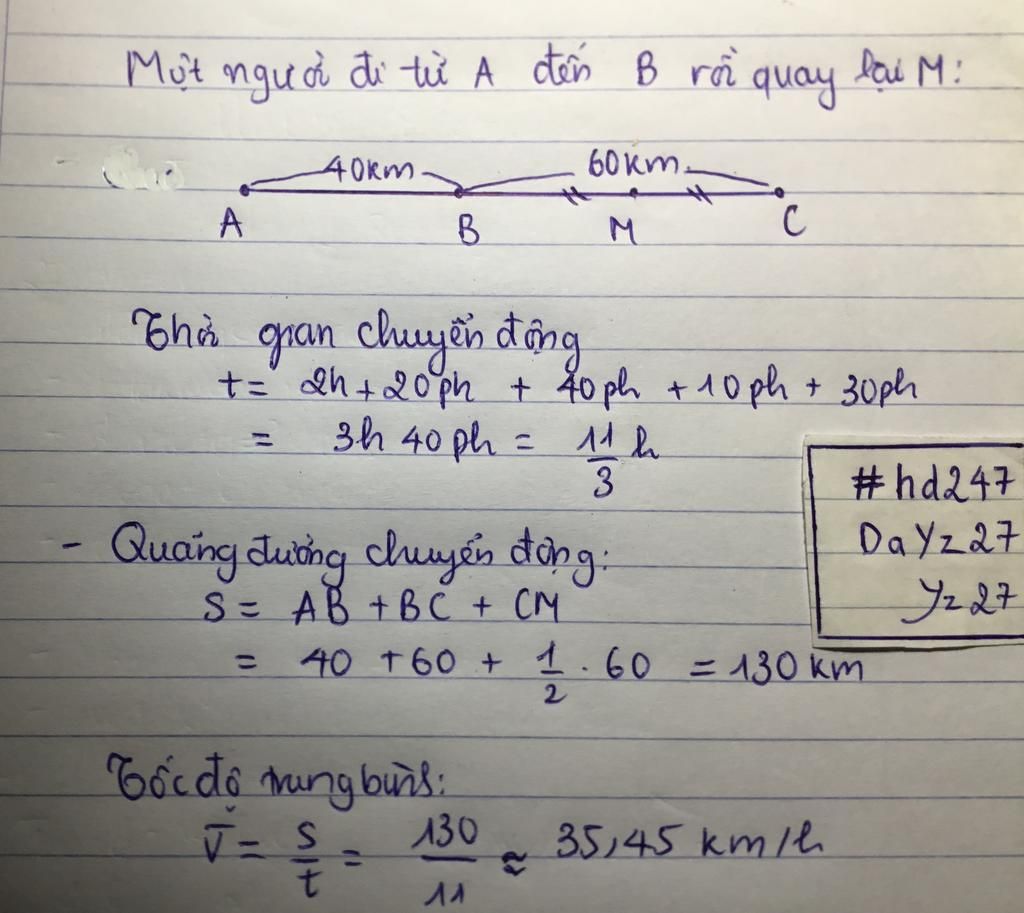 Một người đi từ A đến B rồi quay lại M:
40km 60km
A B M C
Thời gian chuyển động
t = 2h + 20ph + 40ph + 10ph + 30ph
= 3h 40ph = 11/3 h
#hd247
DaYz27
Yz27
- Quãng đường chuyển động:
S = AB + BC + CM
= 40 + 60 + 1/2 . 60 = 130 km
Tốc độ trung bình:
v̄ = s/t = 130/11 ≈ 35,45 km/h